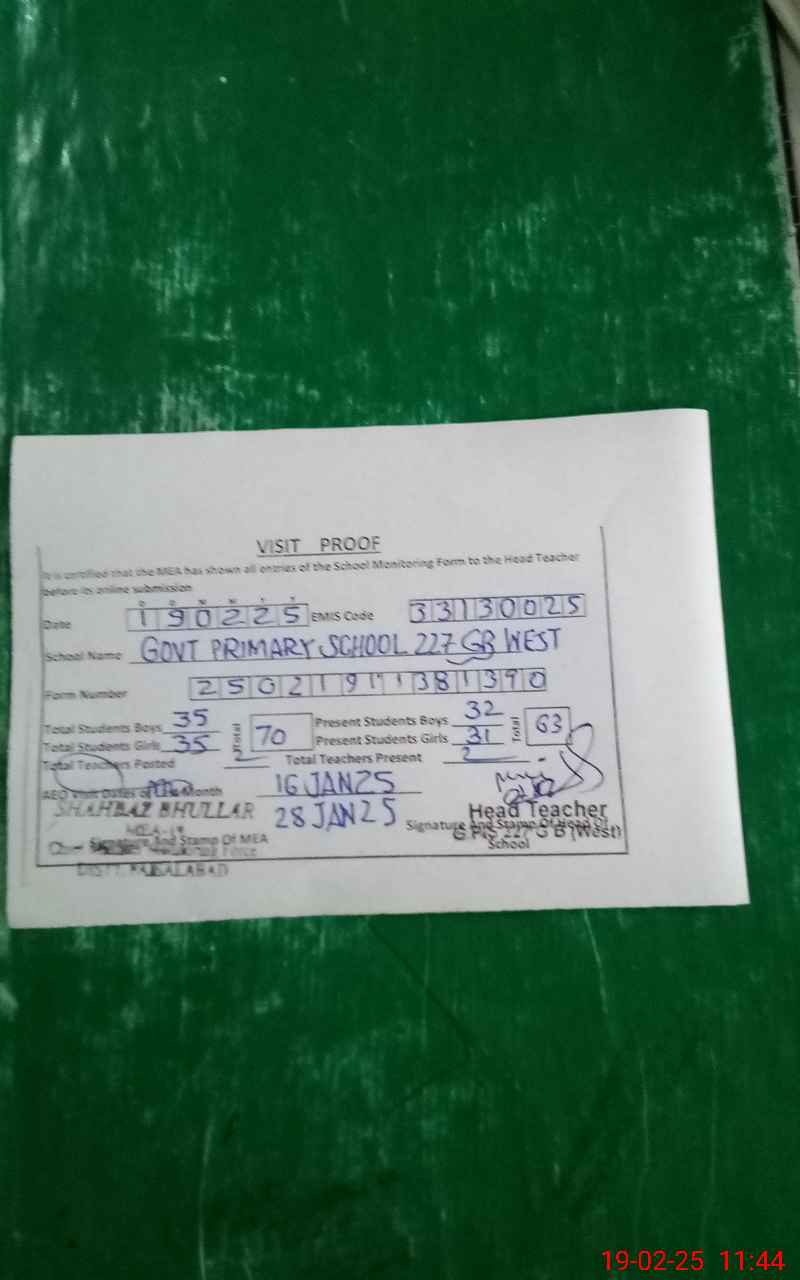 VISIT PROOF
It is certified that the MEA has shown all entries of the School Monitoring Form to the Head Teacher
before its online submission
D D M M Y Y
Date 190225 EMIS Code 33130025
School Name GOVT PRIMARY SCHOOL 227 GB WEST
Form Number 25021911381390
Total Students Boys 35 Total 70 Present Students Boys 32 Total 63
Total Students Girls 35 Present Students Girls 31
Total Teachers Posted 2 Total Teachers Present 2
AEO Visit Dates of the Month 16 JAN25
SHAHBAZ BHULLAR 28 JAN25 Head Teacher
Signature And Stamp Of MEA Signature And Stamp Of Head Of
G P/S 227 G B (West)
School
DISTT. FAISALABAD
19-02-25 11:44